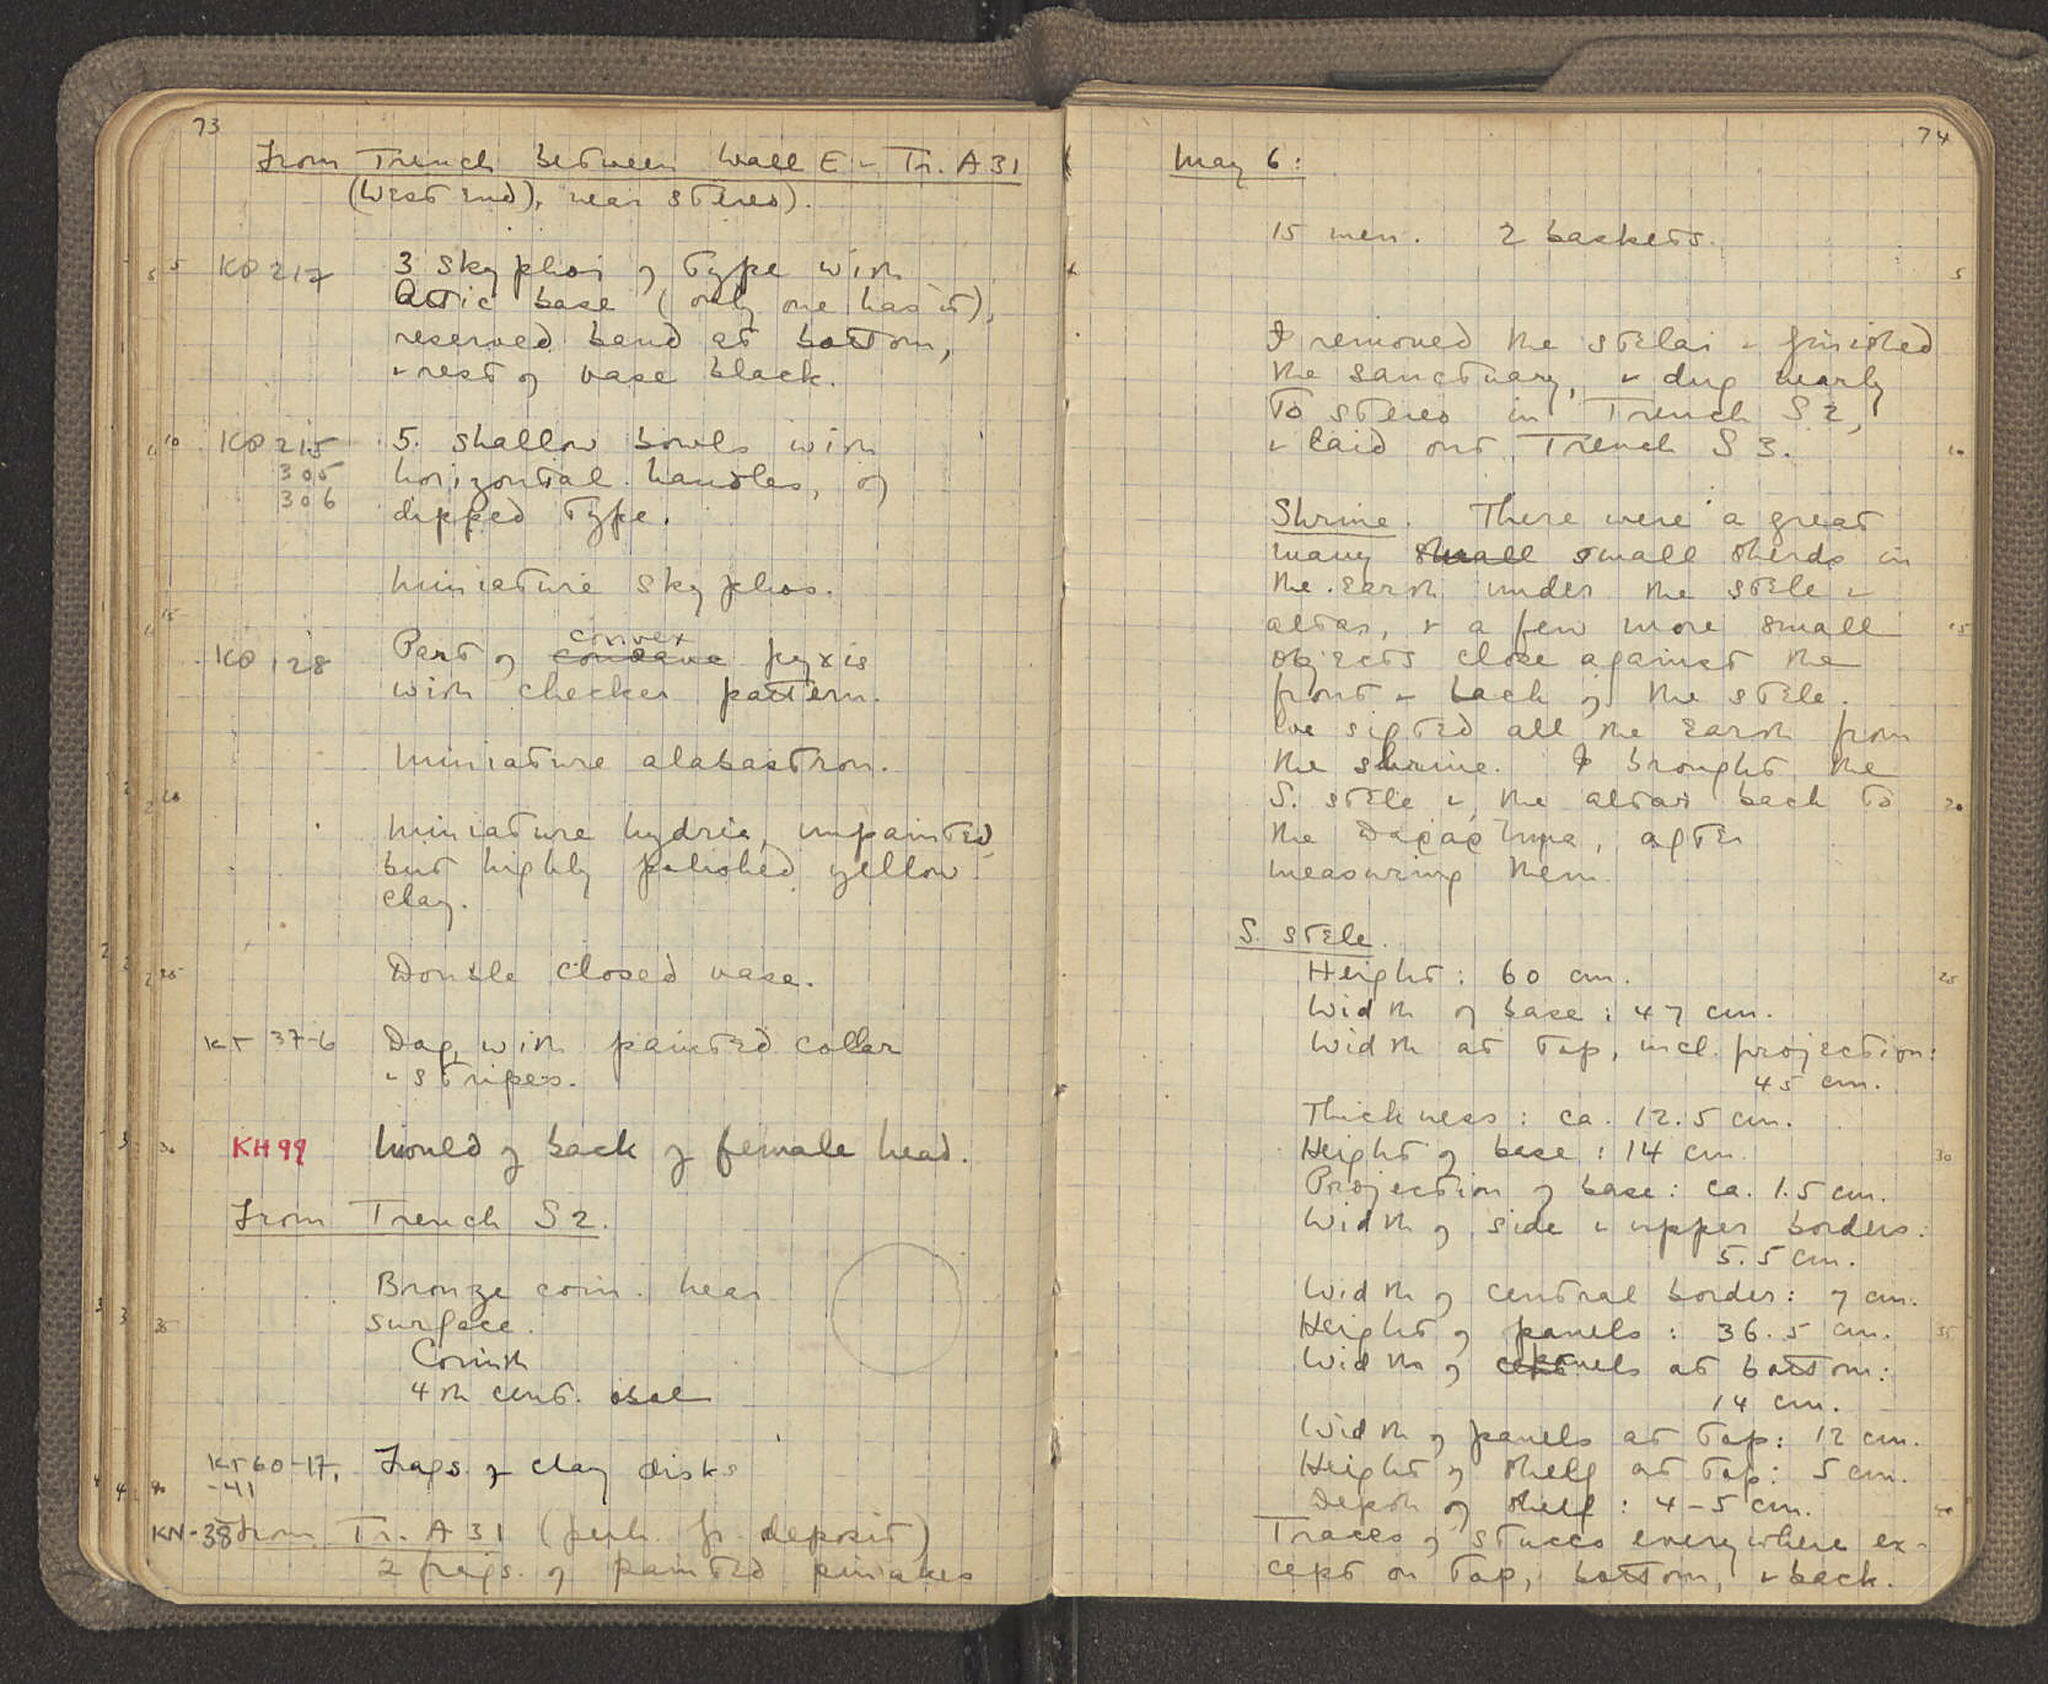 73
From Trench between Wall E - Tr. A 31
(West end), near stereo).
5 KP 217 3 skyphoi of type with
Attic base (only one has it),
reserved band at bottom,
& rest of vase black.
10 KP 215 5 shallow bowls with
305 horizontal handles, of
306 dipped type.
Miniature skyphos.
15
KP 128 Part of concave convex pyxis
with checker pattern.
Miniature alabastron.
20
Miniature hydria, unpainted
but highly polished yellow
clay.
25 Double closed vase.
KT 37-6 Dog, with painted collar
& stripes.
30 KH 99 Mould of back of female head.
From Trench S 2.
Bronze coin. near
35 surface.
Corinth
4th cent. obol
KT 60-17, Frags. of clay disks
40 -41
KN-38 From Tr. A 31 (perh. fr. deposit)
2 frags. of painted pinakes
74
May 6:
15 men. 2 baskets.
5
I removed the stelai & finished
the sanctuary, & dug nearly
to stereo in Trench S 2,
& laid out Trench S 3. 10
Shrine. There were a great
many small small sherds in
the earth under the stele &
altar, & a few more small 15
objects close against the
front & back of the stele.
We sifted all the earth from
the shrine. I brought the
S. stele & the altar back to 20
the , after
measuring them.
S. stele.
Height: 60 cm. 25
Width of base: 47 cm.
Width at top, incl. projection:
45 cm.
Thickness: ca. 12.5 cm.
Height of base: 14 cm. 30
Projection of base: ca. 1.5 cm.
Width of side & upper borders:
5.5 cm.
Width of central border: 7 cm.
Height of panels: 36.5 cm. 35
Width of panels at bottom:
14 cm.
Width of panels at top: 12 cm.
Height of shelf at top: 5 cm.
Depth of shelf: 4-5 cm. 40
Traces of stucco everywhere ex-
cept on top, bottom, & back.